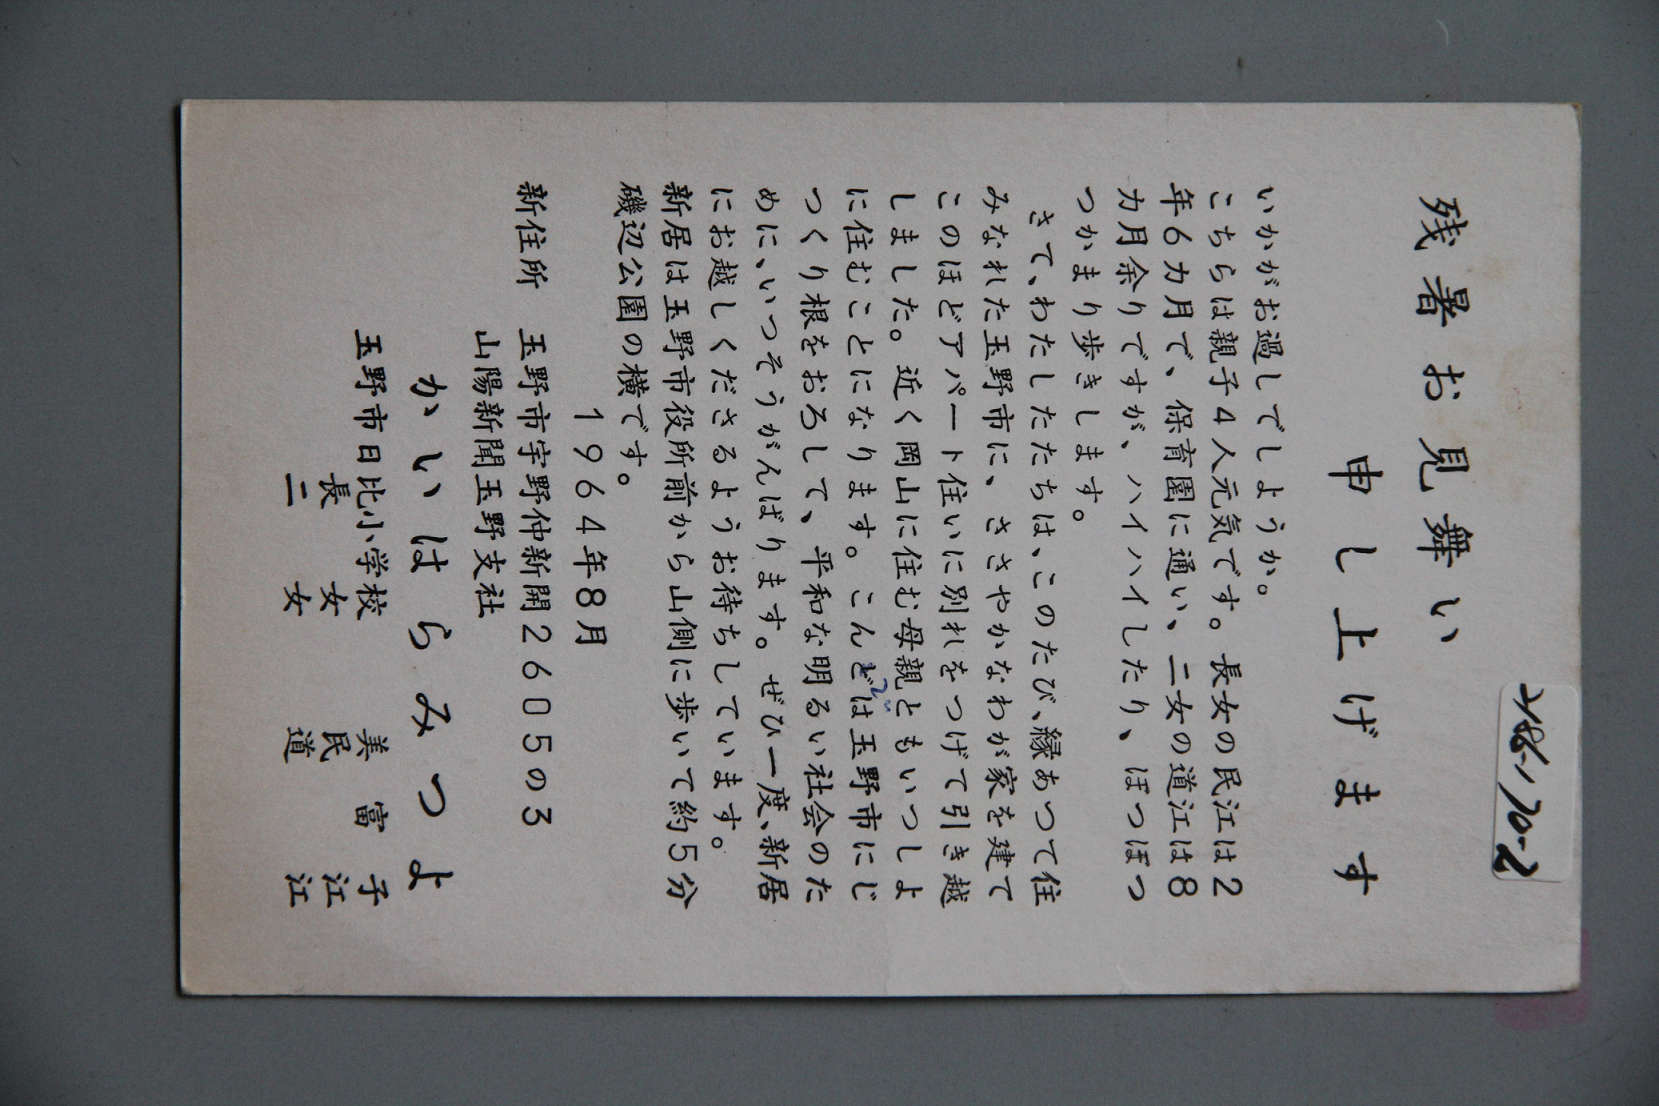 残暑お見舞い
申し上げます
いかがお過してしようか。
こちらは親子4人元気です。長女の民江は2
年6カ月で、保育園に通い、二女の道江は8
カ月余りですが、ハイハイしたり、ぼつぼつ
つかまり歩きします。
さて、わたしたたちは、このたび、縁あつて住
みなれた玉野市に、ささやかなわが家を建て
このほどアパート住いに別れをつげて引き越
しました。近く岡山に住む母親ともいつしよ
に住むことになります。こんどは玉野市にじ
つくり根をおろして、平和な明るい社会のた
めに、いつそうがんばります。ぜひ一度、新居
にお越しくださるようお待ちしています。
新居は玉野市役所前から山側に歩いて約5分
磯辺公園の横です。
1964年8月
新住所 玉野市宇野仲新開2605の3
山陽新聞玉野支社
かいはらみつよ
玉野市日比小学校 美富子
長女 民江
二女 道江